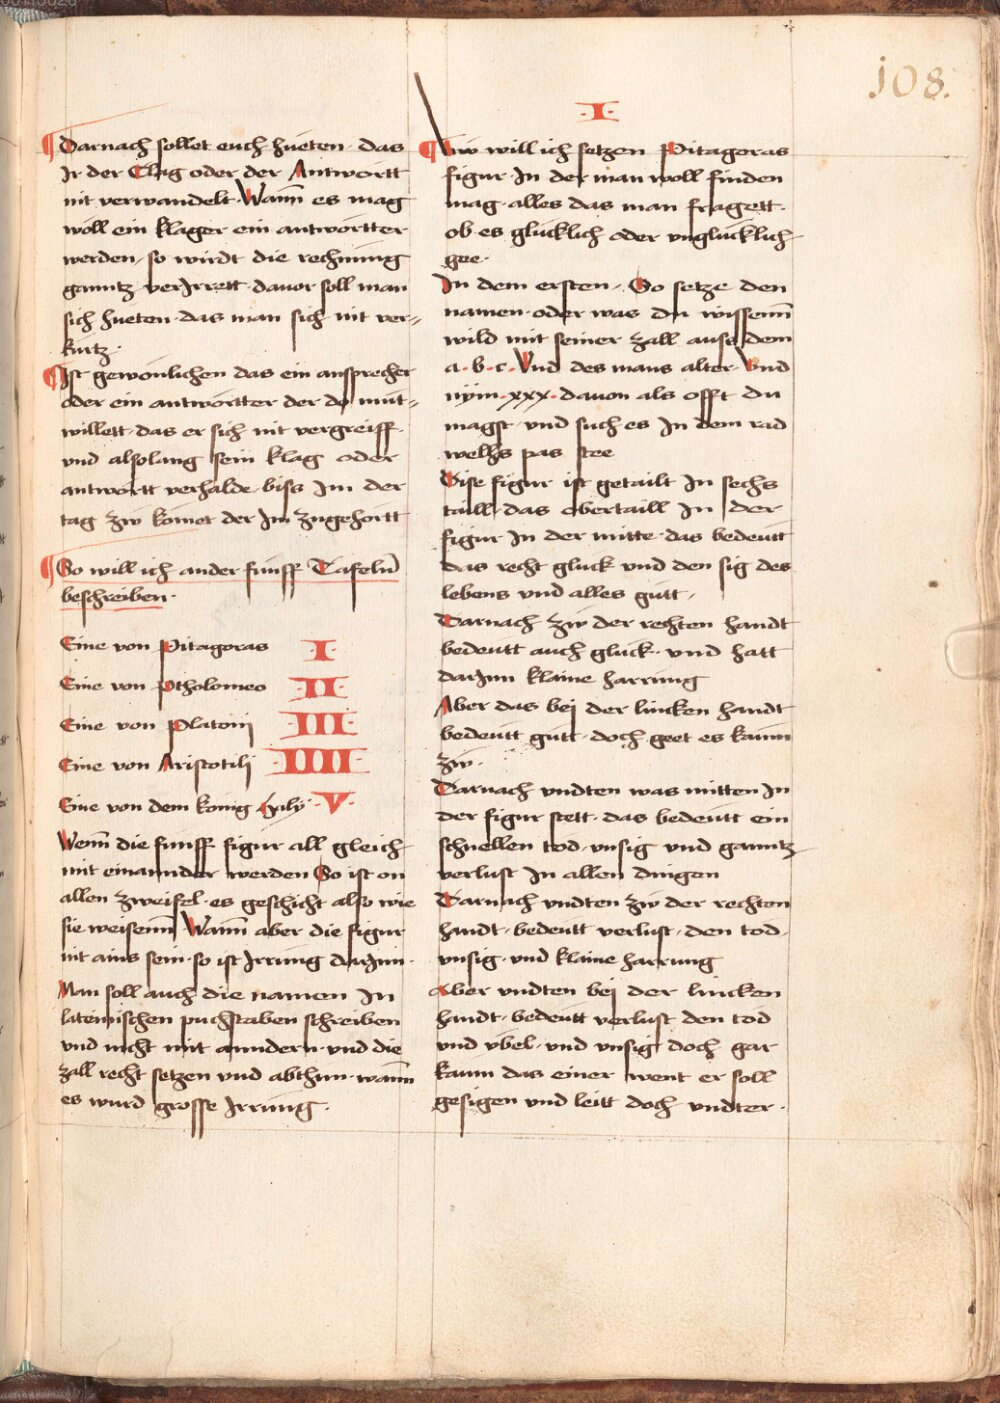 108.
Darnach sollet euch hueten das
Ir der Clag oder der Antwortt
nit verwandelt · Wann es mag
woll ein klager ein antwortter
werden / so wirdt die rechnung
ganntz verIrrett · dauor soll man
sich hueten · das man sich nit ver-
kurtz ·
Ist gewonlichen das ein ansprecher
oder ein antwortter der do mut-
willett · das er sich nit vergreiff ·
vnd alsolang sein klag oder
antwortt verhalde · biss Im der
tag zw komet der Im zugehortt
So will ich ander funff Tafeln
beschreiben ·
Eine von Pitagoras · I ·
Eine von Ptholomeo · II ·
Eine von Platonj · III ·
Eine von Aristotilj · IIII ·
Eine von dem konig · V ·
Wenn die funff figur all gleich
mit einannder werden So ist on
allen zweifel · es geschicht also wie
sie weisenn Wann aber die figur
nit ains sein · so ist Irrung darInn ·
Man soll auch die namen In
lateinischen puchstaben schreiben
vnd nicht mit anndern · vnd die
zall recht setzen vnd abthun · wann
es wurd grosse Irrung ·
· I ·
Nw will ich setzen Pitagoras
figur · In der man woll finden
mag · alles das man fragett ·
ob es glucklich oder vnglucklich
gee ·
In dem ersten / So setze den
namen · oder was du wissenn
wild mit seiner zall auss dem
a · b · c · Vnd des mans alter · Vnd
nym · xxx · dauon als offt du
magst · vnd such es In dem rad
welhs pas stee
Dise figur ist getailt In sechs
taill · das obertaill In der
figur In der mitte · das bedeutt
das recht gluck vnd den sig des
lebens vnd alles gutt /
Darnach zw der rechten handt
bedeutt auch gluck · vnd hatt
darInn klaine harrung
Aber das bej der lincken handt
bedeutt gutt · doch geet es kaum
zw ·
Darnach vndten was mitten In
der figur stett · das bedeutt ein
schnellen tod · vnsig vnd ganntz
verlust In allen dingen
Darnach vndten zw der rechten
handt · bedeutt verlust · den tod ·
vnsig · vnd klaine harrung
Aber vndten bej der lincken
handt · bedeutt verlust den tod
vnd vbel · vnd vnsig doch gar
kaum das einer went er soll
gesigen vnd leitt doch vndter ·